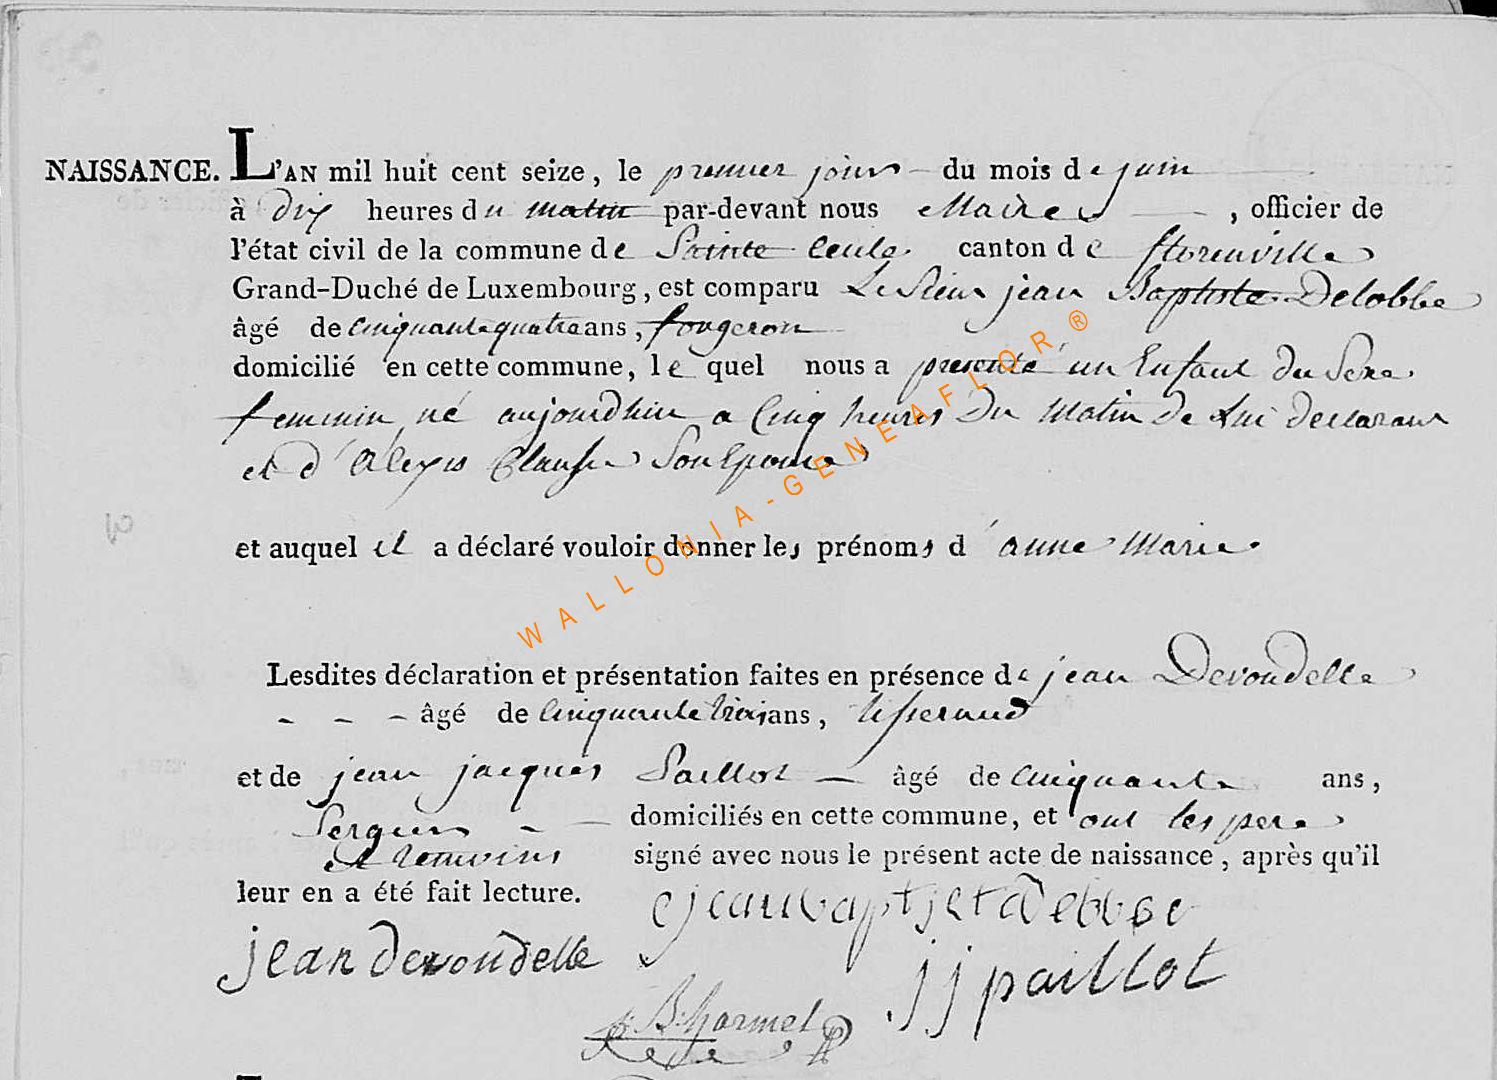 NAISSANCE. L'AN mil huit cent seize, le premier jour du mois de juin
à dix heures du matin par-devant nous Maire, officier de
l'état civil de la commune de Sainte Cecile canton de florenville
Grand-Duché de Luxembourg, est comparu Le Sieur jean Baptiste Delobbe
âgé de cinquante quatre ans, forgeron
domicilié en cette commune, le quel nous a presenté un Enfant du Sexe
feminin né aujourdhui a Cinq heures Du Matin De Lui declarant
et d'Alexis Clausse Son Epouse
et auquel il a déclaré vouloir donner les prénoms d'anne Marie
Lesdites déclaration et présentation faites en présence de jean Devoudelle
- - - âgé de Cinquante trois ans, tisserand
et de jean jacques Paillot âgé de Cinquante ans,
Sergeur domiciliés en cette commune, et ont les pere
et temoins signé avec nous le présent acte de naissance, après qu'il
leur en a été fait lecture.
jean devoudelle
jj paillot
WALLONIA-GENEAFLOR®